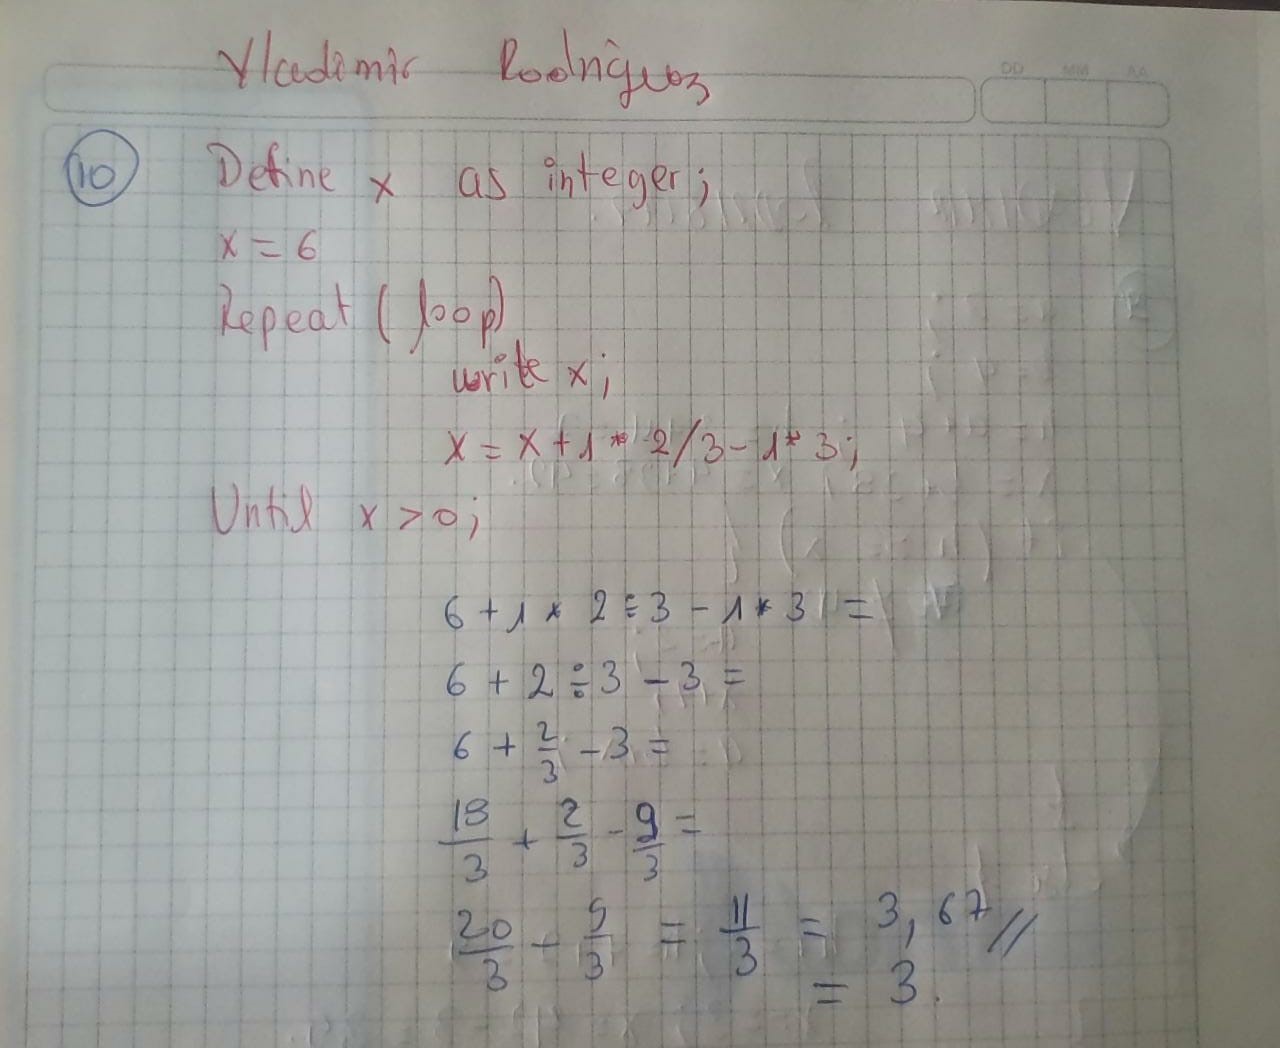 Vladimir Rodríguez
DD MM AA
10 Define x as integer;
x = 6
Repeat (loop)
write x;
x = x + 1 * 2/3 - 1 * 3;
Until x > 0;
6 + 1 * 2 ÷ 3 - 1 * 3 =
6 + 2 ÷ 3 - 3 =
6 + 2/3 - 3 =
18/3 + 2/3 - 9/3 =
20/3 - 9/3 = 11/3 = 3,67 //
= 3.